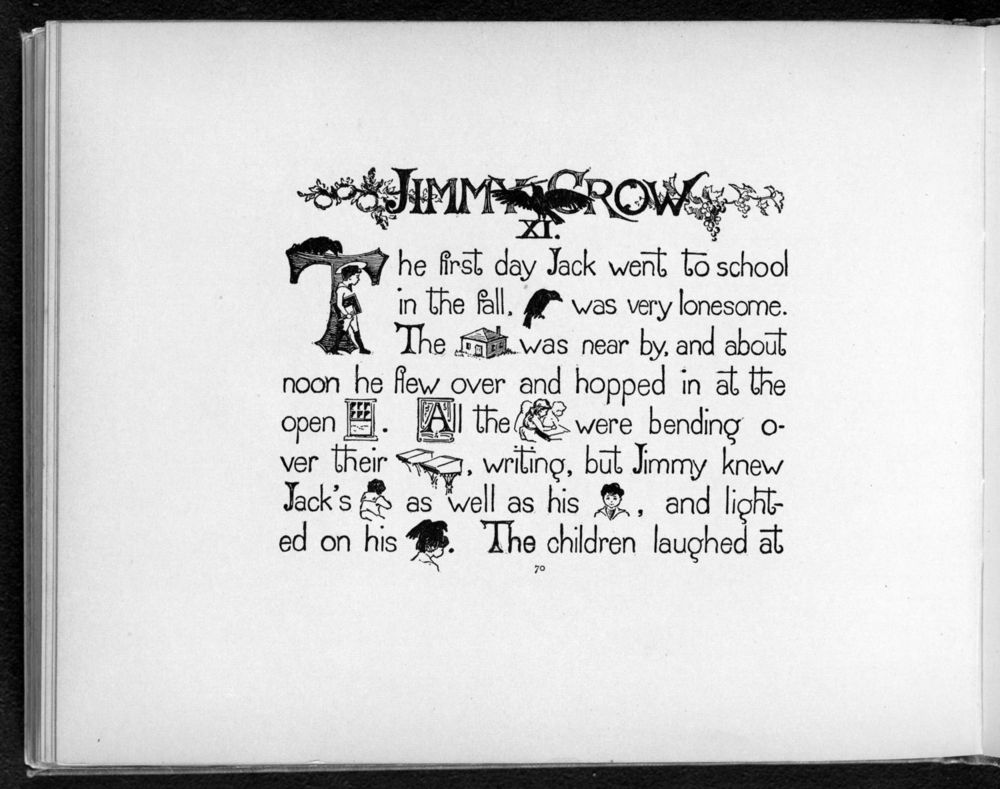 JIMMY CROW
XI.
The first day Jack went to school
in the fall, was very lonesome.
The was near by, and about
noon he flew over and hopped in at the
open . All the were bending o-
ver their , writing, but Jimmy knew
Jack's as well as his , and light-
ed on his . The children laughed at
70